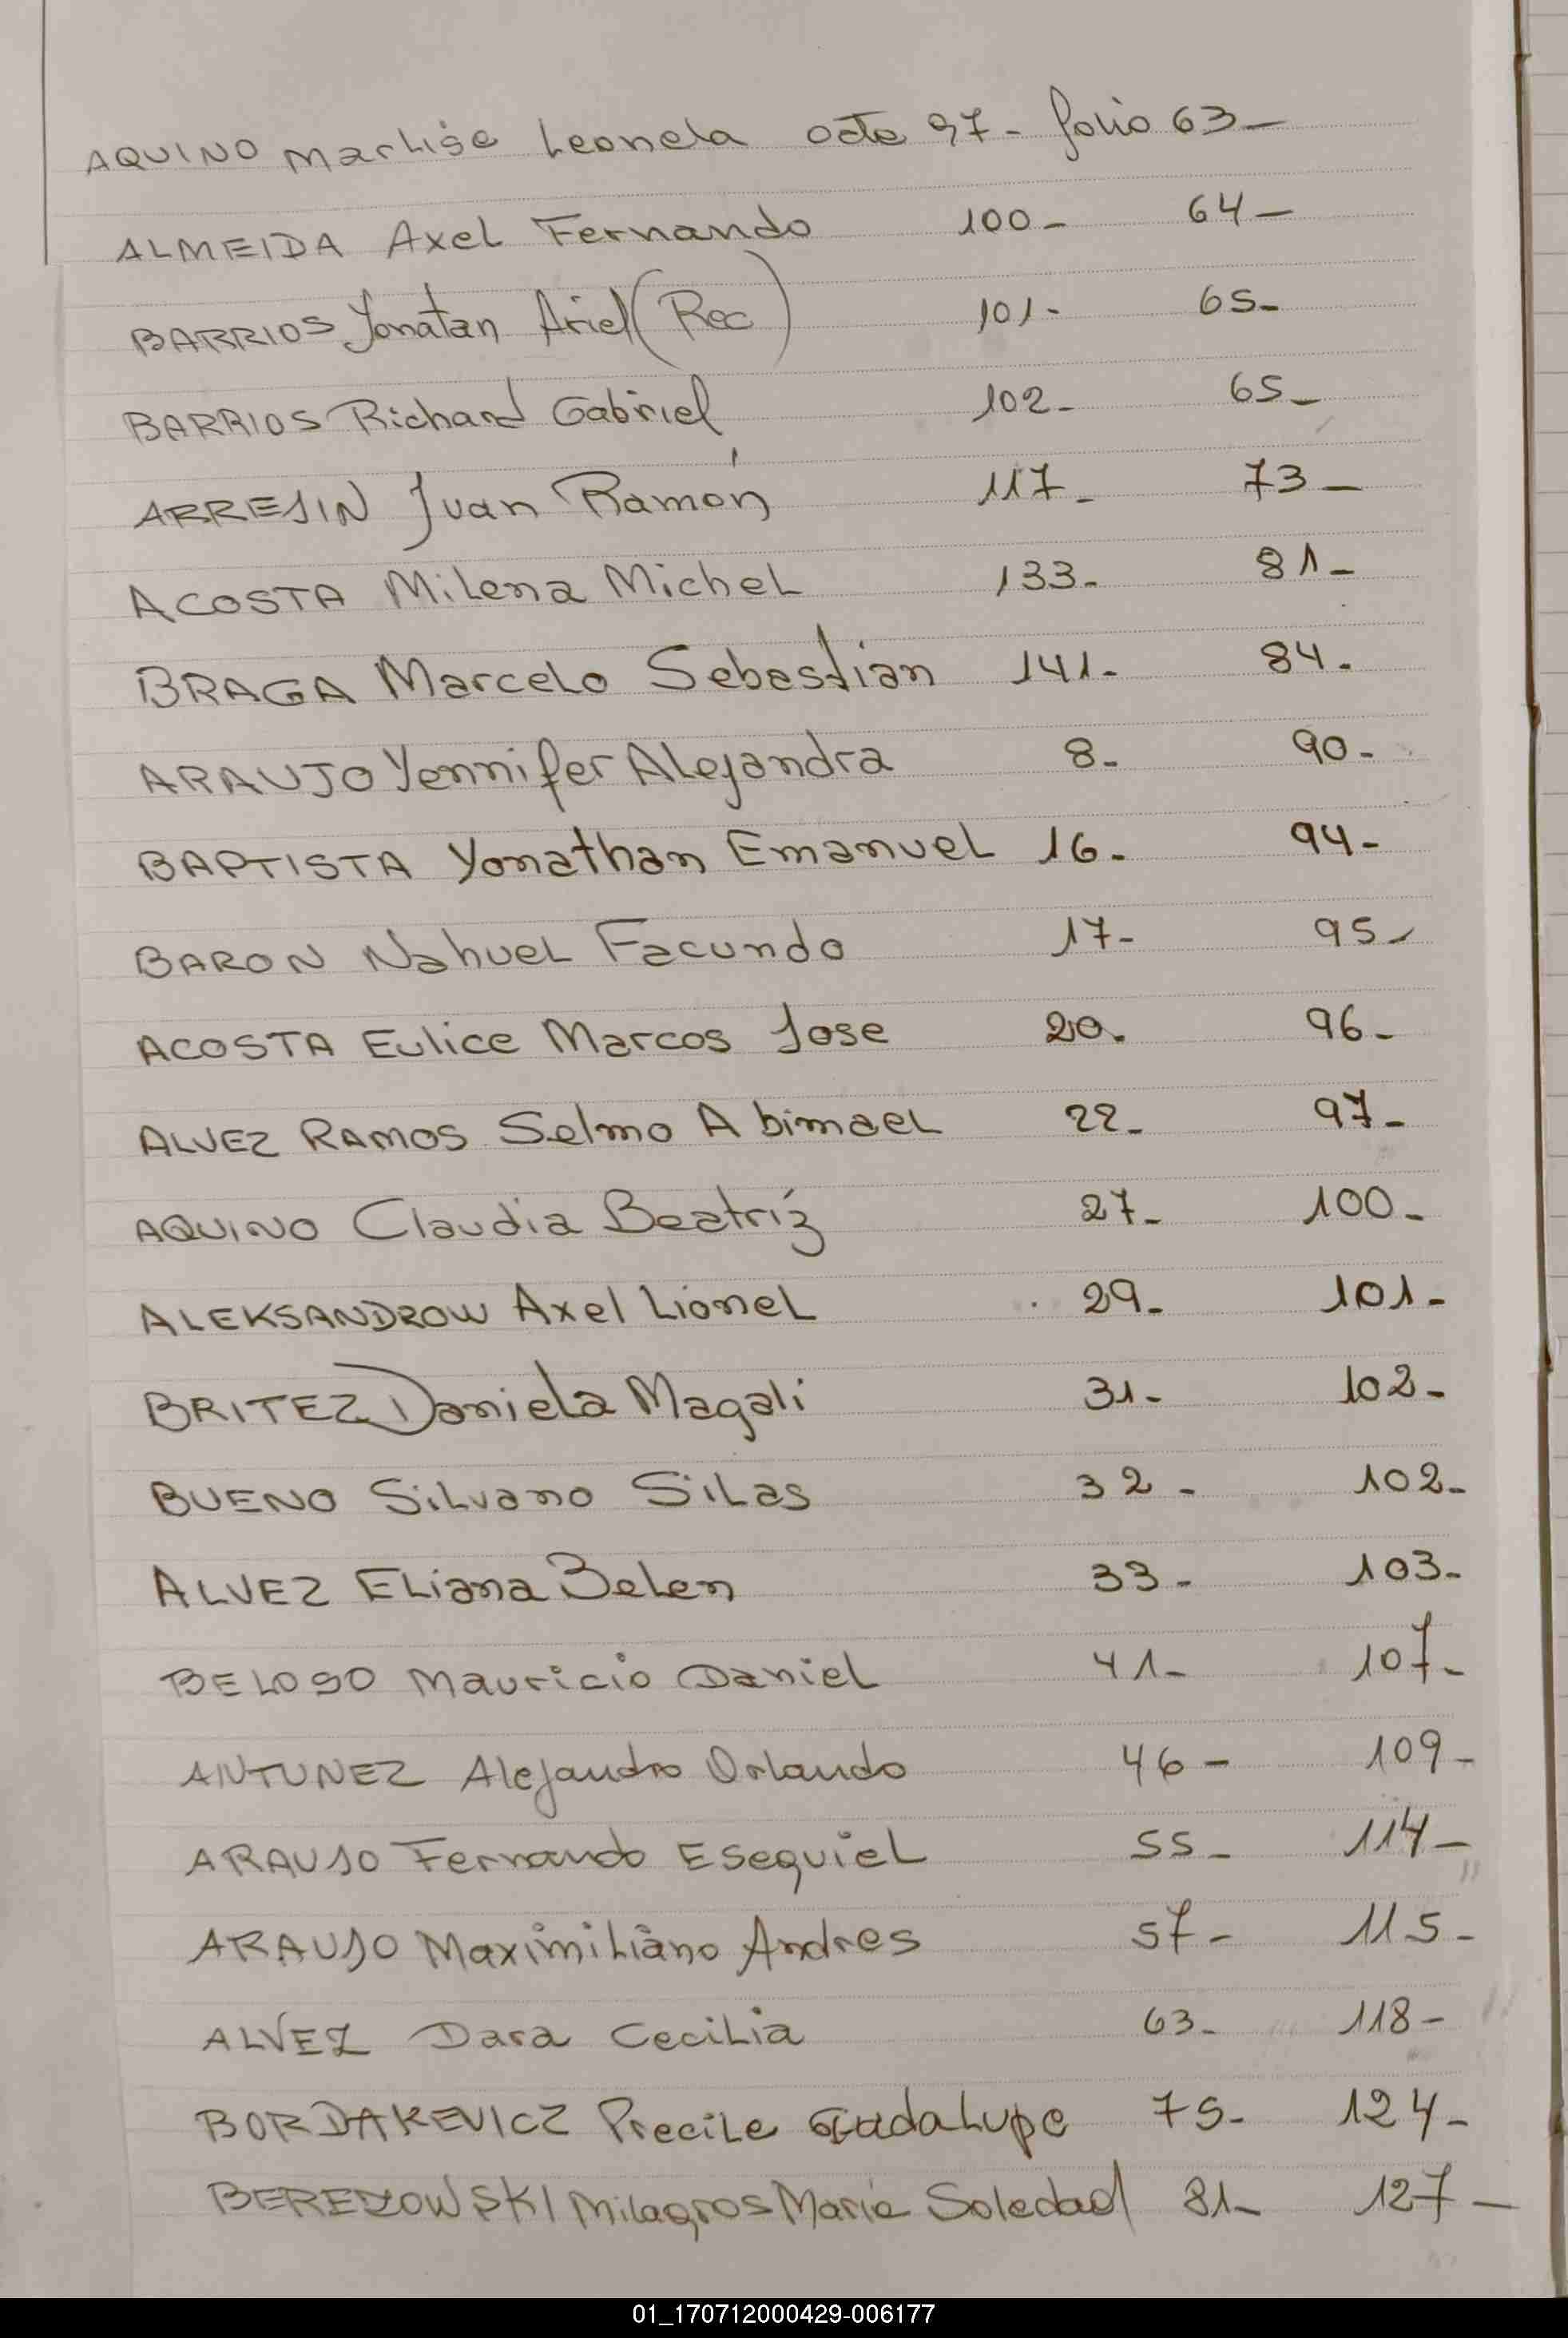 AQUINO Marlise Leonela acta 97- folio 63-
ALMEIDA Axel Fernando 100- 64-
BARRIOS Yonatan Ariel (Rec) 101- 65-
BARRIOS Richard Gabriel 102- 65-
ARREJIN Juan Ramón 117- 73-
ACOSTA Milena Michel 133- 81-
BRAGA Marcelo Sebastian 141- 84-
ARAUJO Yennifer Alejandra 8- 90-
BAPTISTA Yonathan Emanuel 16- 94-
BARON Nahuel Facundo 17- 95-
ACOSTA Eulice Marcos Jose 20- 96-
ALVEZ RAMOS Selmo Abimael 22- 97-
AQUINO Claudia Beatríz 27- 100-
ALEKSANDROW Axel Lionel 29- 101-
BRITEZ Daniela Magali 31- 102-
BUENO Silvano Silas 32- 102-
ALVEZ Eliana Belen 33- 103-
BELOSO Mauricio Daniel 41- 107-
ANTUNEZ Alejandro Orlando 46- 109-
ARAUJO Fernando Esequiel 55- 114-
ARAUJO Maximiliano Andres 57- 115-
ALVEZ Dara Cecilia 63- 118-
BORDAKEVICZ Precile Guadalupe 75- 124-
BEREZOWSKI Milagros Maria Soledad 81- 127-
01_170712000429-006177